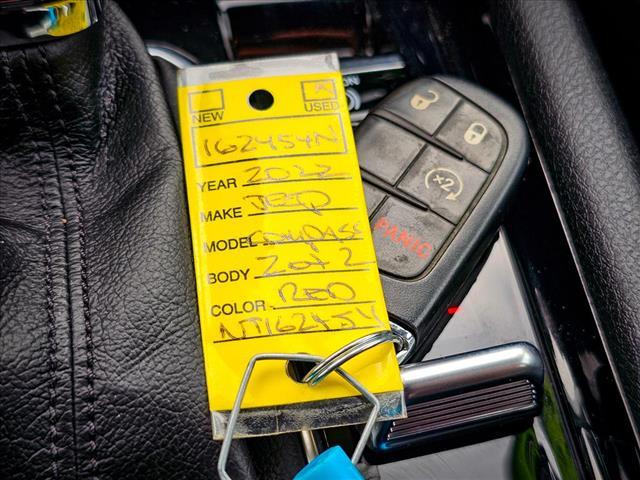 NEW USED
162454N
YEAR 2022
MAKE JEEP
MODEL COMPASS
BODY
COLOR RED
NT162454
x2
PANIC